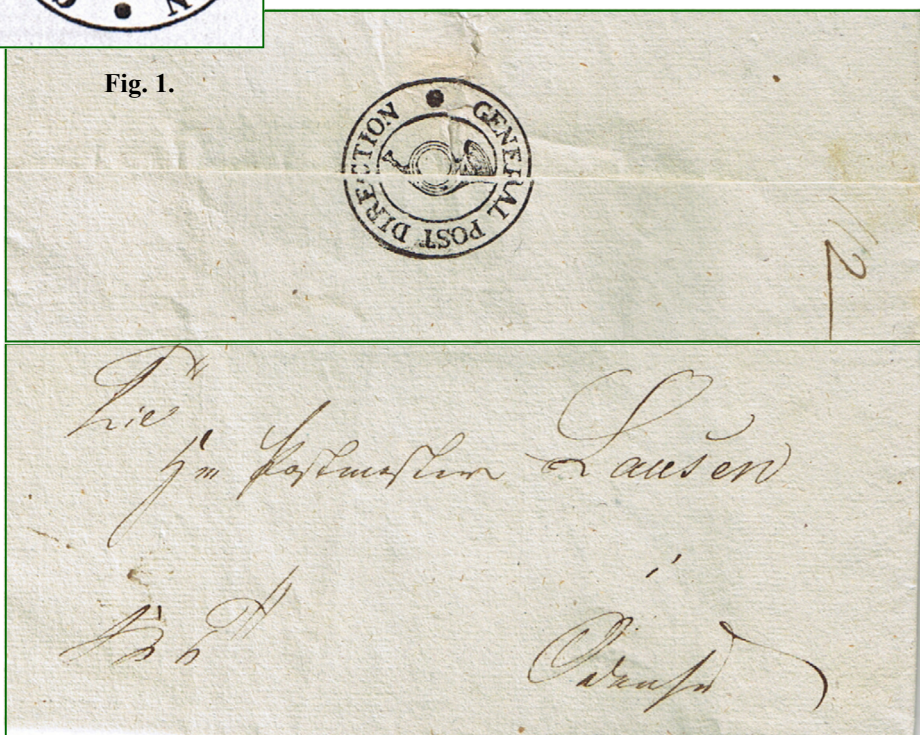 Fig. 1.
GENERAL POST DIRECTION
2
Til
Hr Postmester Lausen
i
Odense